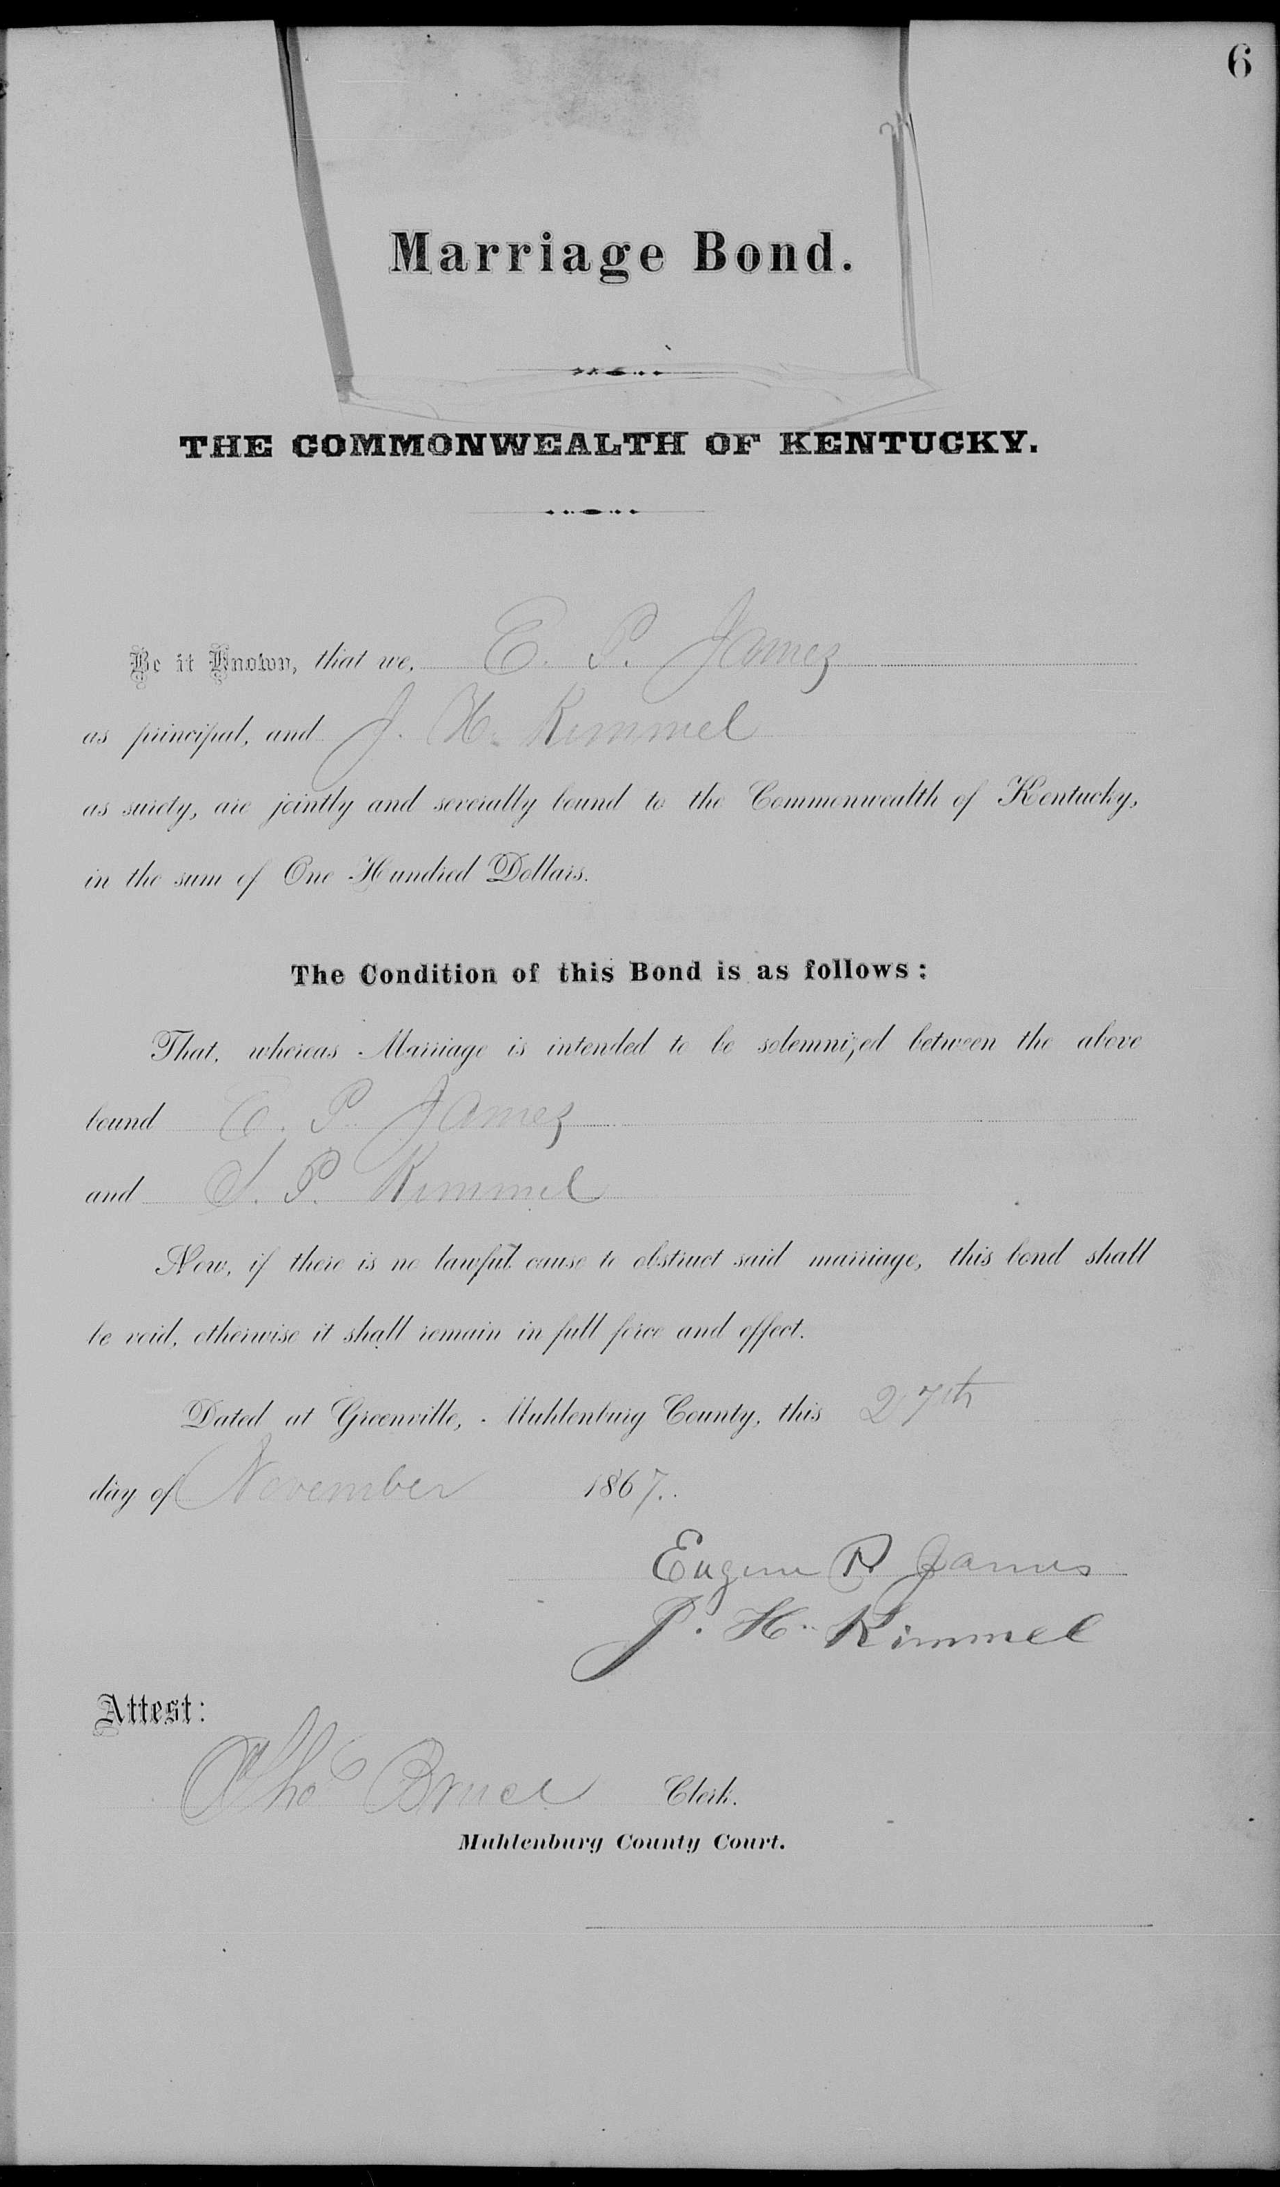 6
Marriage Bond.
THE COMMONWEALTH OF KENTUCKY.
Be it Known, that we, E. P. James
as principal, and J. H. Kimmel
as surety, are jointly and severally bound to the Commonwealth of Kentucky,
in the sum of One Hundred Dollars.
The Condition of this Bond is as follows:
That, whereas Marriage is intended to be solemnized between the above
bound E. P. James
and S. P. Kimmel
Now, if there is no lawful cause to obstruct said marriage, this bond shall
be void, otherwise it shall remain in full force and effect.
Dated at Greenville, Muhlenburg County, this 27th
day of November 1867.
Eugene P. James
J. H. Kimmel
Attest:
Tho Bruce Clerk.
Muhlenburg County Court.